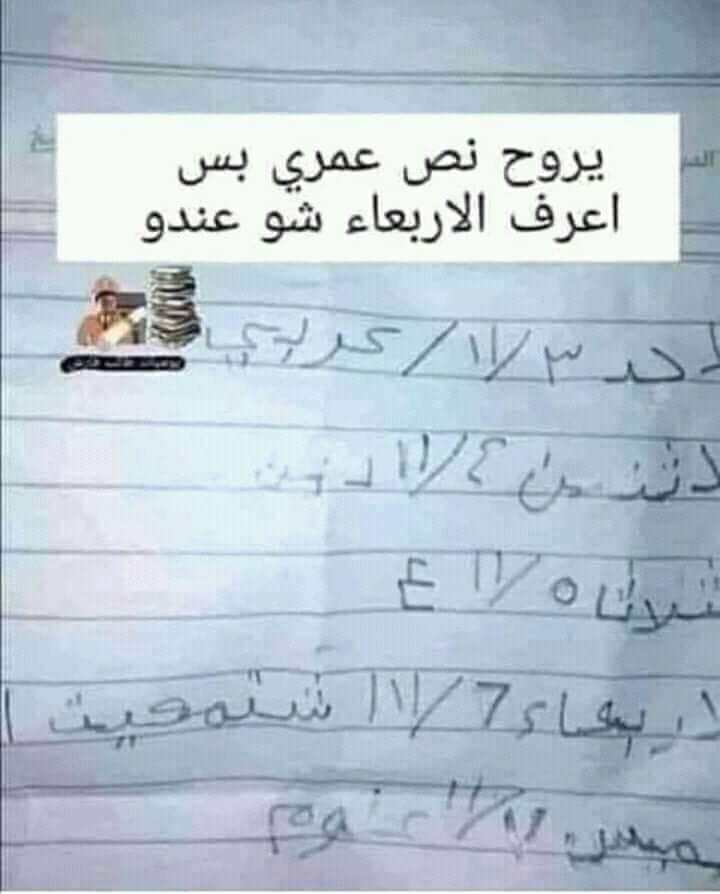 يروح نص عمري بس
اعرف الاربعاء شو عندو
احد ٣/١١/عربي
لاثنين ٤/١١
ثلاثا ٥/١١ E
لاربعاء 7/١١
خميس ٧/١١ علوم